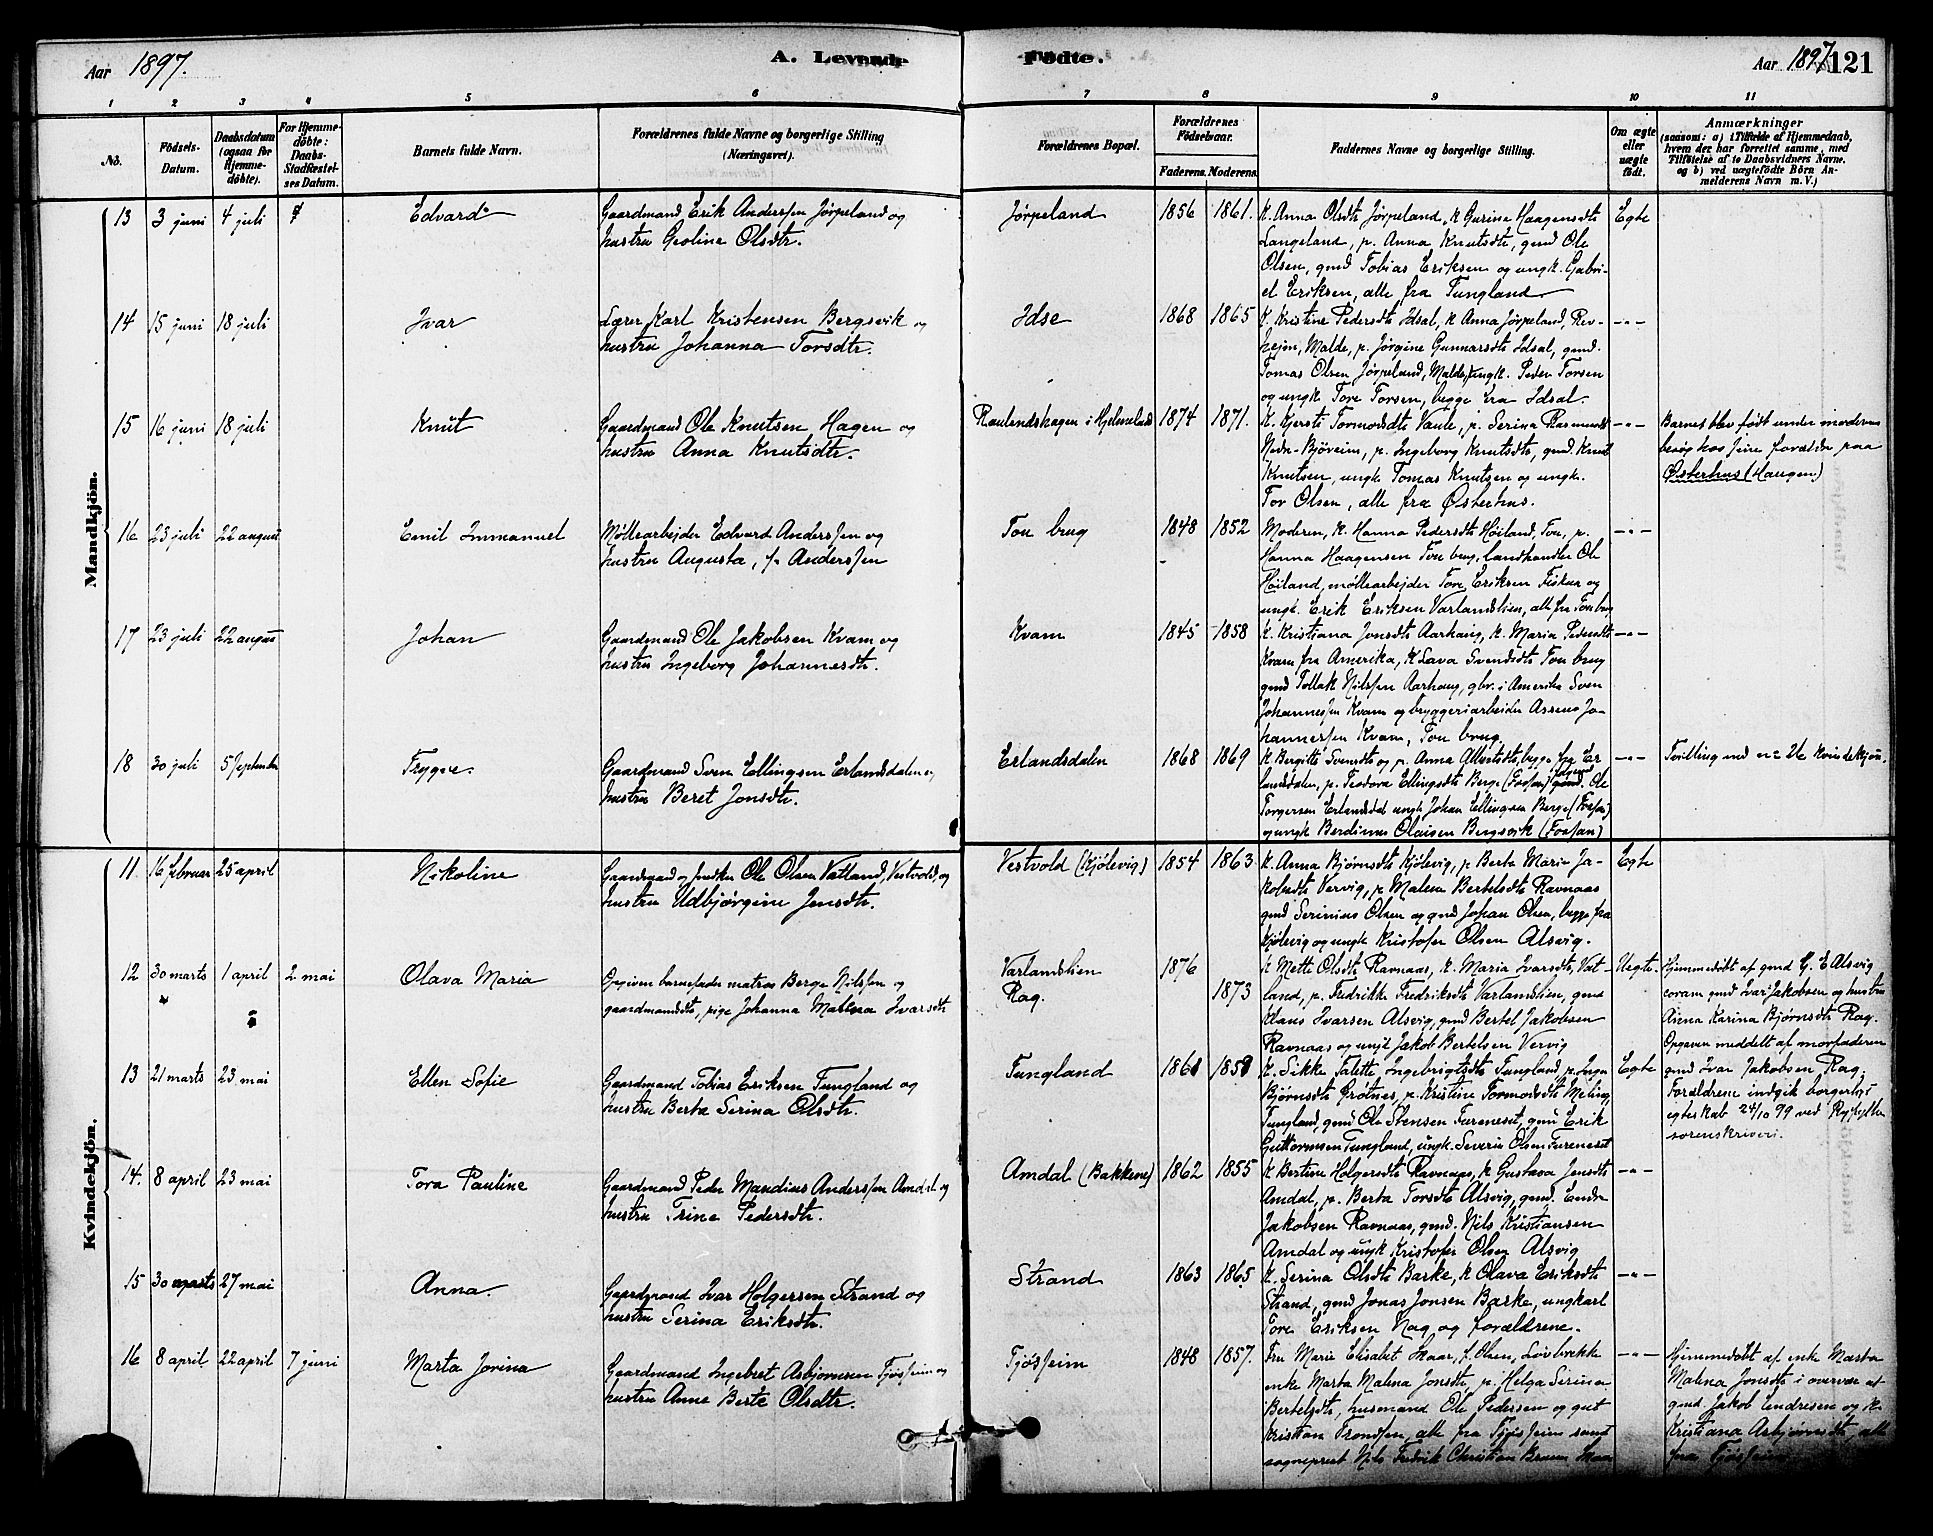 Aar 1897.
A. Levende Fødte.
Aar 1897 121
1 2 3 4 5 6 7 8 9 10 11
No.
Fødsels-
Datum.
Daabsdatum
(ogsaa for
Hjemme-
døbte).
For Hjemme-
døbte:
Daabs-
Stadfæstel-
ses Datum.
Barnets fulde Navn.
Forældrenes fulde Navne og borgerlige Stilling
(Næringsvei).
Forældrenes Bopæl.
Forældrenes
Fødselsaar.
Faderens. Moderens.
Faddernes Navne og borgerlige Stilling.
Om ægte
eller
uægte
født.
Anmærkninger
(saasom: a) i Tilfælde af Hjemmedaab,
hvem der har forrettet samme, med
Tilføielse af to Daabsvidners Navne.
og b) ved uægtefødte Børn An-
melderens Navn m. V.)
Mandkjön.
13 3 juni 4 juli Edvard
Gaardmand Erik Anderssen Jørpeland og
hustru Geoline Olsdtr.
Jørpeland 1856 1861.
K. Anna Olsdtr Jørpeland, k Gurine Haagensdtr
Langeland, p. Anna Knutsdtr, gmd Ole
Olsen, gmd Tobias Eriksen og ungk. Gabri-
el Eriksen, alle fra Tungland
Egte
14 15 juni 18 juli Ivar
Lærer Karl Kristensen Bergsvik og
hustru Johanna Torsdtr.
Idse 1868 1865
K. Kristine Pedersdtr Idsal, k Anna Jørpeland, Rev-
hejen, Malde, p. Jørgine Gunnarsdtr Idsal, gmd.
Tomas Olsen Jørpeland, Malde, ungk. Peder Torsen
og ungk Tore Torsen, begge fra Idsal.
-"-
15 16 juni 18 juli Knut
Gaardmand Ole Knutsen Hagen og
hustru Anna Knutsdtr.
i Hjelmeland 1874 1871.
K. Kjersti Tormodsdtr Vaule, p. Serina Rasmusdt
p. Ingeborg Knutsdtr, gmd. Knut
Knutsen, ungk Tomas Knutsen og ungk.
Tor Olsen, alle fra Østerhus.
-"-
Barnet blev født under moderens
besøg hos sine forældre paa
Østerhus (Haugen)
16 23 juli 22 august Emil Immanuel
Møllearbejder Edvard Anderssen og
hustru Augusta, f. Anderssen
Tou brug 1848 1852
Moderen, k. Hanna Pedersdtr Høiland, Tou, p.
Hanna Haagensen Tou brug, landhandler Ole
Høiland, møllearbejder Tore Eriksen Fiskaa og
ungk. Erik Eriksen Varlandslien, alle fra Tou brug
-"-
17 23 juli 22 august Johan
Gaardmand Ole Jakobsen Kvam og
hustru Ingeborg Johannesdtr.
Kvam 1845 1858
K. Kristiana Jonsdtr Aarhaug, k. Maria Pedersdtr
Kvam fra Amerika, K Lava Svendsdtr Tou brug
gmd Tollak Nilssen Aarhaug, gbr. i Amerika Sven
Johannessen Kvam og bryggeriarbeider Jo-
hannessen Kvam, Tou brug.
-"-
18 30 juli 5 September Trygve.
Gaardmand Sven Ellingsen Erlandsdalen og
hustru Beret Jonsdtr.
Erlandsdalen 1868 1869
K Bergitte Svendsdtr og p. Anna begge fra Er-
landsdalen, p. Teodora Ellingsdtr Berge (Fossan) gmd. Ole
Torgersen Erlandsdal ungk Johan Ellingsen Berge (Fossan)
og ungk Berdinus Olausen Bergsvik (Fossan)
-"-
Tvilling med no 26 kvindekjøn.
Kvindekjön.
11. 16 februar 25 april Nikoline
Gaardmand og snedker Ole Olsen Vatland, Vestvold, og
hustru Udbjørgine Jensdtr.
Vestvold (Kjølevig) 1854 1863
K. Anna Bjørnsdtr Kjølevig, p. Berta Maria Ja-
kobsdtr Vervig, p Malena Bertelsdtr Ravnaas
gmd Serinius Olsen og gmd Johan Olsen, begge fra
Kjølevig og ungk Kristofer Olsen Alsvig.
Egte
12 30 marts 1 april 2 mai Olava Maria
Opgiven barnefader matros Berge Nilssen og
gaardmandsdtr, pige Johanna Malena Ivarsdtr
Varlandslien 1876
Rag. 1873
k Mette Olsdtr Ravnaas, k. Maria Ivarsdtr, Vat-
land, p. Fredrikke Fredriksdtr Varlandslien, gmd
Klaus Ivarsen Alsvig, gmd Bertel Jakobsen
Ravnaas og ungk Jakob Bertelsen Vervig
Uegte.
Hjemmedøbt af gmd G. E Alsvig
coram gmd Ivar Jakobsen og hustru
Karina Bjørnsdtr Rag.
Opgaven meddelt af morfaderen
gmd Ivar Jakobsen Rag.
Forældrene indgik borgerligt
egteskab 24/10 99 ved Ryfylke
sorenskriveri.
13 21 marts 23 mai Ellen Sofie
Gaardmand Tobias Eriksen Tungland og
hustru Berta Serina Olsdtr.
Tungland 1861 1859
K. Sikke Talette Ingebrigtsdtr Tungland, p. Inga
Bjørnsdtr Grøtnes, p. Kristine Tormodsdtr Meling,
Tungland, gmd Ole Stensen Fureneset, gmd Erik
Guttormsen Tungland, ungk. Severin Olsen Fureneset
Egte
14. 8 april 23 mai Tora Pauline
Gaardmand Peder Mandius Anderssen Amdal og
hustru Trine Pedersdtr.
Amdal (Bakkene) 1862 1855
K Bertine Holgersdtr Ravnaas, k Gustava Jensdtr
Amdal, p. Berta Torsdtr Alsvig, gmd. Endre
Jakobsen Ravnaas, gmd. Nils Kristiansen
Amdal og ungk Kristofer Olsen Alsvig
-"-
15 30 marts 27 mai Anna
Gaardmand Ivar Holgersen Strand og
hustru Serina Eriksdtr.
Strand 1863 1865
K. Serina Olsdtr Barke, k Olava Eriksdtr
Strand, gmd Jonas Jonsen Barke, ungkarl
Tore Eriksen Nag og forældrene.
-"-
16 8 april 22 april 7 juni Marta Jorina
Gaardmand Ingebret Asbjørnsen Tjøssheim og
hustru Anne Berte Olsdtr.
Tjøssheim 1848 1857.
Fru Marie Elisabet f. Olsen, Løvbrekke
enke Marta Malena Jonsdtr, p. Helga Serina
Bertelsdtr, husmand Ole Pedersen og gut
Kristian Trondsen, alle fra Tjøssheim samt
sogneprest Nils Fredrik Christian Bruun
-"-
Hjemmedøbt af enke Marta
Malena Jonsdtr i overvær af
gmd. Jakob Endresen og k.
Kristiana Asbjørnsdtr, alle
fra Tjøssheim